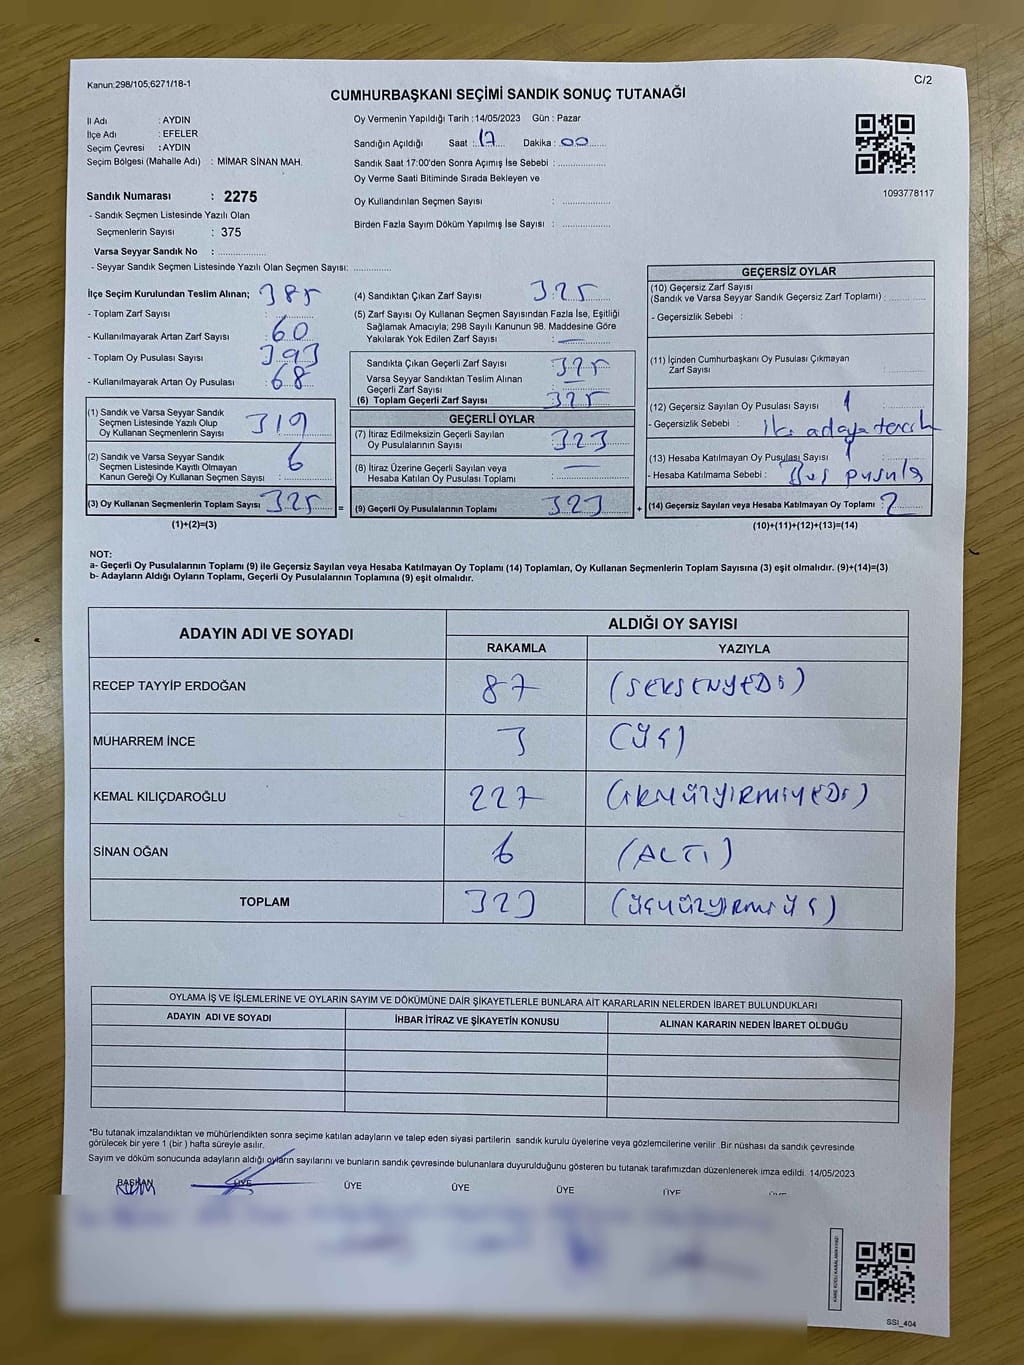 Kanun:298/105,6271/18-1
C/2
CUMHURBAŞKANI SEÇİMİ SANDIK SONUÇ TUTANAĞI
İl Adı : AYDIN
İlçe Adı : EFELER
Seçim Çevresi : AYDIN
Seçim Bölgesi (Mahalle Adı) : MİMAR SİNAN MAH.
Sandık Numarası : 2275
- Sandık Seçmen Listesinde Yazılı Olan
Seçmenlerin Sayısı : 375
Varsa Seyyar Sandık No :
- Seyyar Sandık Seçmen Listesinde Yazılı Olan Seçmen Sayısı:
Oy Vermenin Yapıldığı Tarih : 14/05/2023 Gün : Pazar
Sandığın Açıldığı Saat : 17 Dakika : 00
Sandık Saat 17:00'den Sonra Açımış İse Sebebi :
Oy Verme Saati Bitiminde Sırada Bekleyen ve
Oy Kullandırılan Seçmen Sayısı :
Birden Fazla Sayım Döküm Yapılmış İse Sayısı :
1093778117
İlçe Seçim Kurulundan Teslim Alınan; 385
- Toplam Zarf Sayısı :
- Kullanılmayarak Artan Zarf Sayısı : 60
- Toplam Oy Pusulası Sayısı : 393
- Kullanılmayarak Artan Oy Pusulası : 68
(1) Sandık ve Varsa Seyyar Sandık
Seçmen Listesinde Yazılı Olup
Oy Kullanan Seçmenlerin Sayısı : 319
(2) Sandık ve Varsa Seyyar Sandık
Seçmen Listesinde Kayıtlı Olmayan
Kanun Gereği Oy Kullanan Seçmen Sayısı : 6
(3) Oy Kullanan Seçmenlerin Toplam Sayısı : 325
(1)+(2)=(3)
=
(4) Sandıktan Çıkan Zarf Sayısı 325
(5) Zarf Sayısı Oy Kullanan Seçmen Sayısından Fazla İse, Eşitliği
Sağlamak Amacıyla; 298 Sayılı Kanunun 98. Maddesine Göre
Yakılarak Yok Edilen Zarf Sayısı : —
Sandıkta Çıkan Geçerli Zarf Sayısı 325
Varsa Seyyar Sandıktan Teslim Alınan
Geçerli Zarf Sayısı —
(6) Toplam Geçerli Zarf Sayısı 325
GEÇERLİ OYLAR
(7) İtiraz Edilmeksizin Geçerli Sayılan
Oy Pusulalarının Sayısı : 323
(8) İtiraz Üzerine Geçerli Sayılan veya
Hesaba Katılan Oy Pusulası Toplamı : —
(9) Geçerli Oy Pusulalarının Toplamı 323
+
GEÇERSİZ OYLAR
(10) Geçersiz Zarf Sayısı
(Sandık ve Varsa Seyyar Sandık Geçersiz Zarf Toplamı) :
- Geçersizlik Sebebi :
(11) İçinden Cumhurbaşkanı Oy Pusulası Çıkmayan
Zarf Sayısı :
(12) Geçersiz Sayılan Oy Pusulası Sayısı : 1
- Geçersizlik Sebebi : iki adaya tercih
(13) Hesaba Katılmayan Oy Pusulası Sayısı : 1
- Hesaba Katılmama Sebebi : Boş pusula
(14) Geçersiz Sayılan veya Hesaba Katılmayan Oy Toplamı : 2
(10)+(11)+(12)+(13)=(14)
NOT:
a- Geçerli Oy Pusulalarının Toplamı (9) ile Geçersiz Sayılan veya Hesaba Katılmayan Oy Toplamı (14) Toplamları, Oy Kullanan Seçmenlerin Toplam Sayısına (3) eşit olmalıdır. (9)+(14)=(3)
b- Adayların Aldığı Oyların Toplamı, Geçerli Oy Pusulalarının Toplamına (9) eşit olmalıdır.
ADAYIN ADI VE SOYADI
ALDIĞI OY SAYISI
RAKAMLA YAZIYLA
RECEP TAYYİP ERDOĞAN 87 (SEKSENYEDİ)
MUHARREM İNCE 3 (ÜÇ)
KEMAL KILIÇDAROĞLU 227 (İKİYÜZYİRMİYEDİ)
SİNAN OĞAN 6 (ALTI)
TOPLAM 323 (ÜÇYÜZYİRMİÜÇ)
OYLAMA İŞ VE İŞLEMLERİNE VE OYLARIN SAYIM VE DÖKÜMÜNE DAİR ŞİKAYETLERLE BUNLARA AİT KARARLARIN NELERDEN İBARET BULUNDUKLARI
ADAYIN ADI VE SOYADI İHBAR İTİRAZ VE ŞİKAYETİN KONUSU ALINAN KARARIN NEDEN İBARET OLDUĞU
*Bu tutanak imzalandıktan ve mühürlendikten sonra seçime katılan adayların ve talep eden siyasi partilerin sandık kurulu üyelerine veya gözlemcilerine verilir Bir nüshası da sandık çevresinde
görülecek bir yere 1 (bir ) hafta süreyle asılır.
Sayım ve döküm sonucunda adayların aldığı oyların sayılarını ve bunların sandık çevresinde bulunanlara duyurulduğunu gösteren bu tutanak tarafımızdan düzenlenerek imza edildi. 14/05/2023
BAŞKAN ÜYE ÜYE ÜYE ÜYE ÜYE
SSI_404